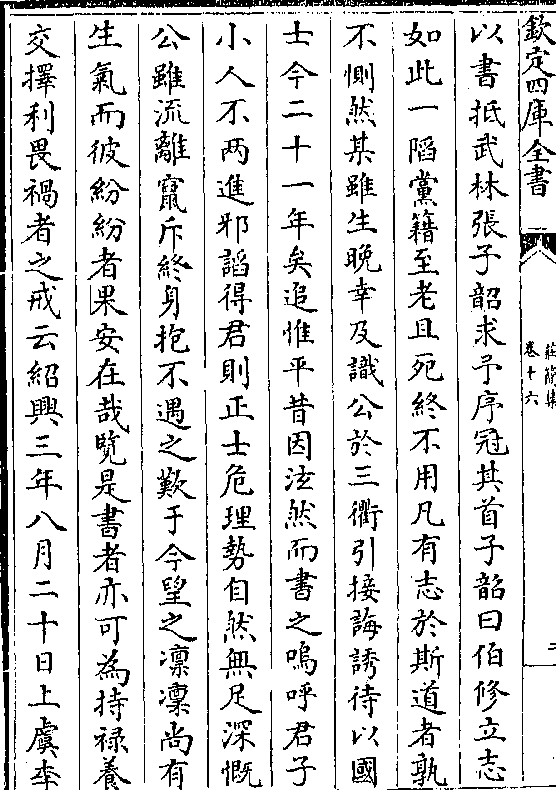 欽定四庫全書
莊簡集
卷十六
二
以書抵武林張子韶求予序冠其首子韶曰伯修立志
如此一陷黨籍至老且死終不用凡有志於斯道者孰
不惻然某雖生晚幸及識公於三衢引接誨誘待以國
士今二十一年矣追惟平昔因泫然而書之嗚呼君子
小人不兩進邪謟得君則正士危理勢自然無足深慨
公雖流離竄斥終身抱不遇之歎于今望之凛凛尚有
生氣而彼紛紛者果安在哉覽是書者亦可為持禄養
交擇利畏禍者之戒云紹興三年八月二十日上虞李